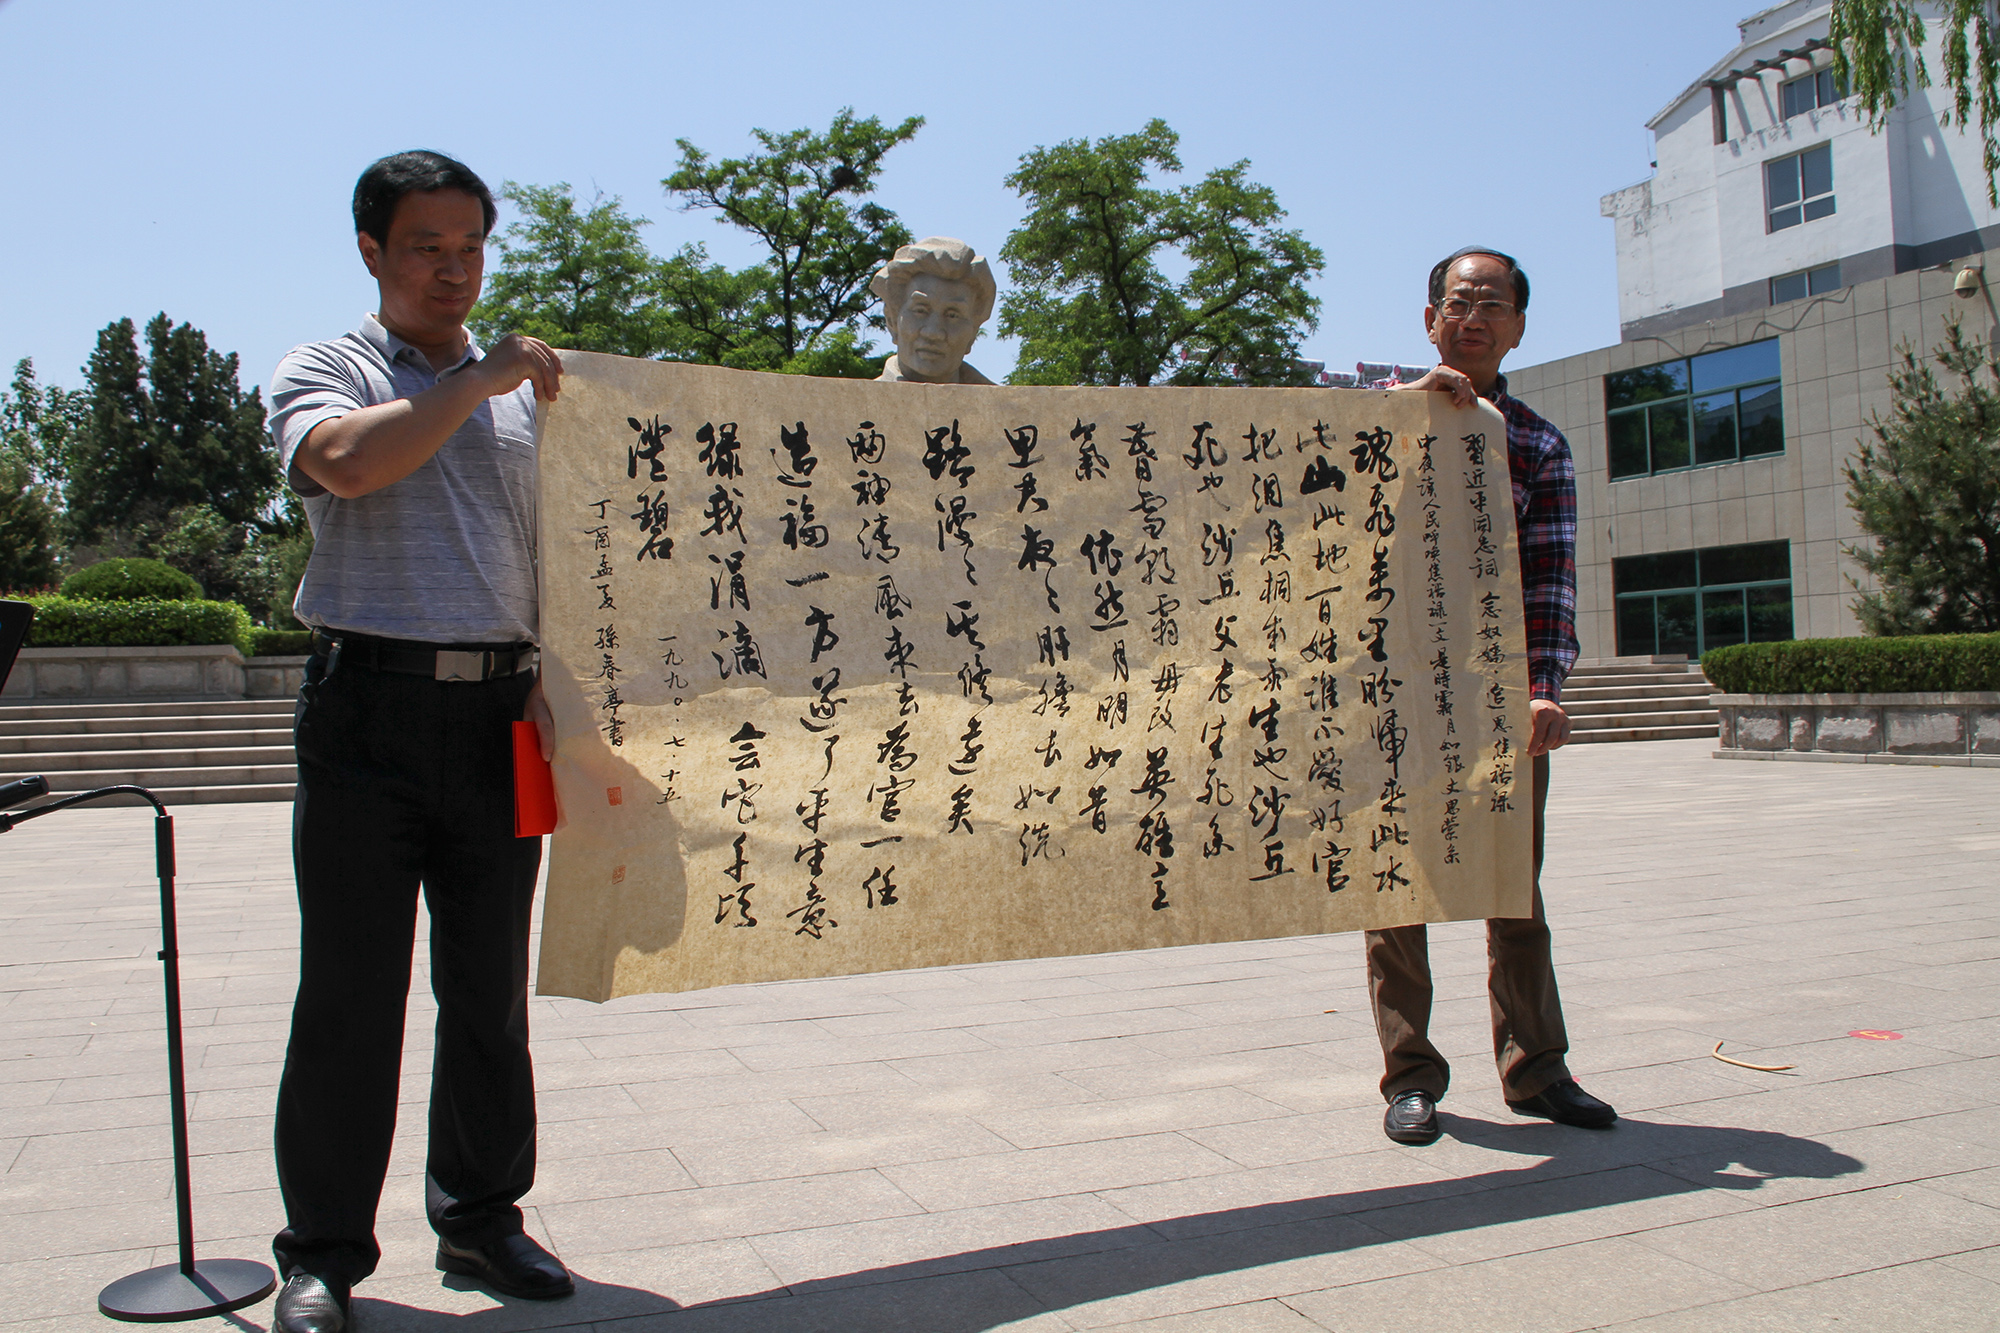 習近平同志詞 念奴嬌·追思焦裕禄
中夜读人民呼唤焦裕禄一文是時霽月如銀文思縈系
魂飛萬里盼歸來此水
此山此地百姓誰不愛好官
把泪焦桐成雨生也沙丘
死也沙丘父老生死系
暮雪朝霜毋改英雄意
氣 依然月明如昔
思君夜〻肝膽长如洗
路漫〻其修遠矣
两袖清風來去為官一任
造福一方遂了平生意
绿我涓滴 会它千顷
澄碧
一九九〇·七·十五
丁酉孟夏 孫春亭書